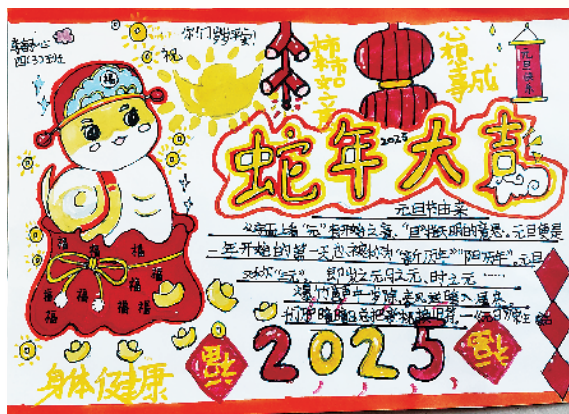 四(3)班
祝
你们岁岁平安!
心想
事成
元旦快乐
福
蛇年大吉
2025
元旦节由来
从字面上看"元"有开始之意,"旦"指天明的意思。元旦便是
一年开始的第一天,也被称为"新历年""阳历年"。元旦
又称"三元",即岁之元、月之元、时之元……
爆竹声中一岁除,春风送暖入屠苏
千门万户曈曈日,总把新桃换旧符。
福 福 福
福 福 福
福 福 福
福
2025
福
身体健康